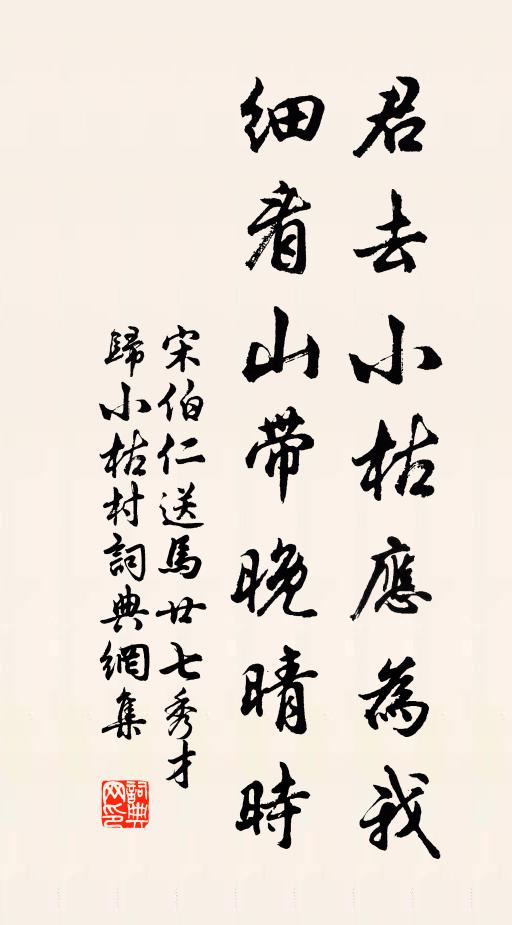 君去小枯應為我
細看山帶晚晴時
宋伯仁送馬廿七秀才
歸小枯村詞典網集
詞典
网印